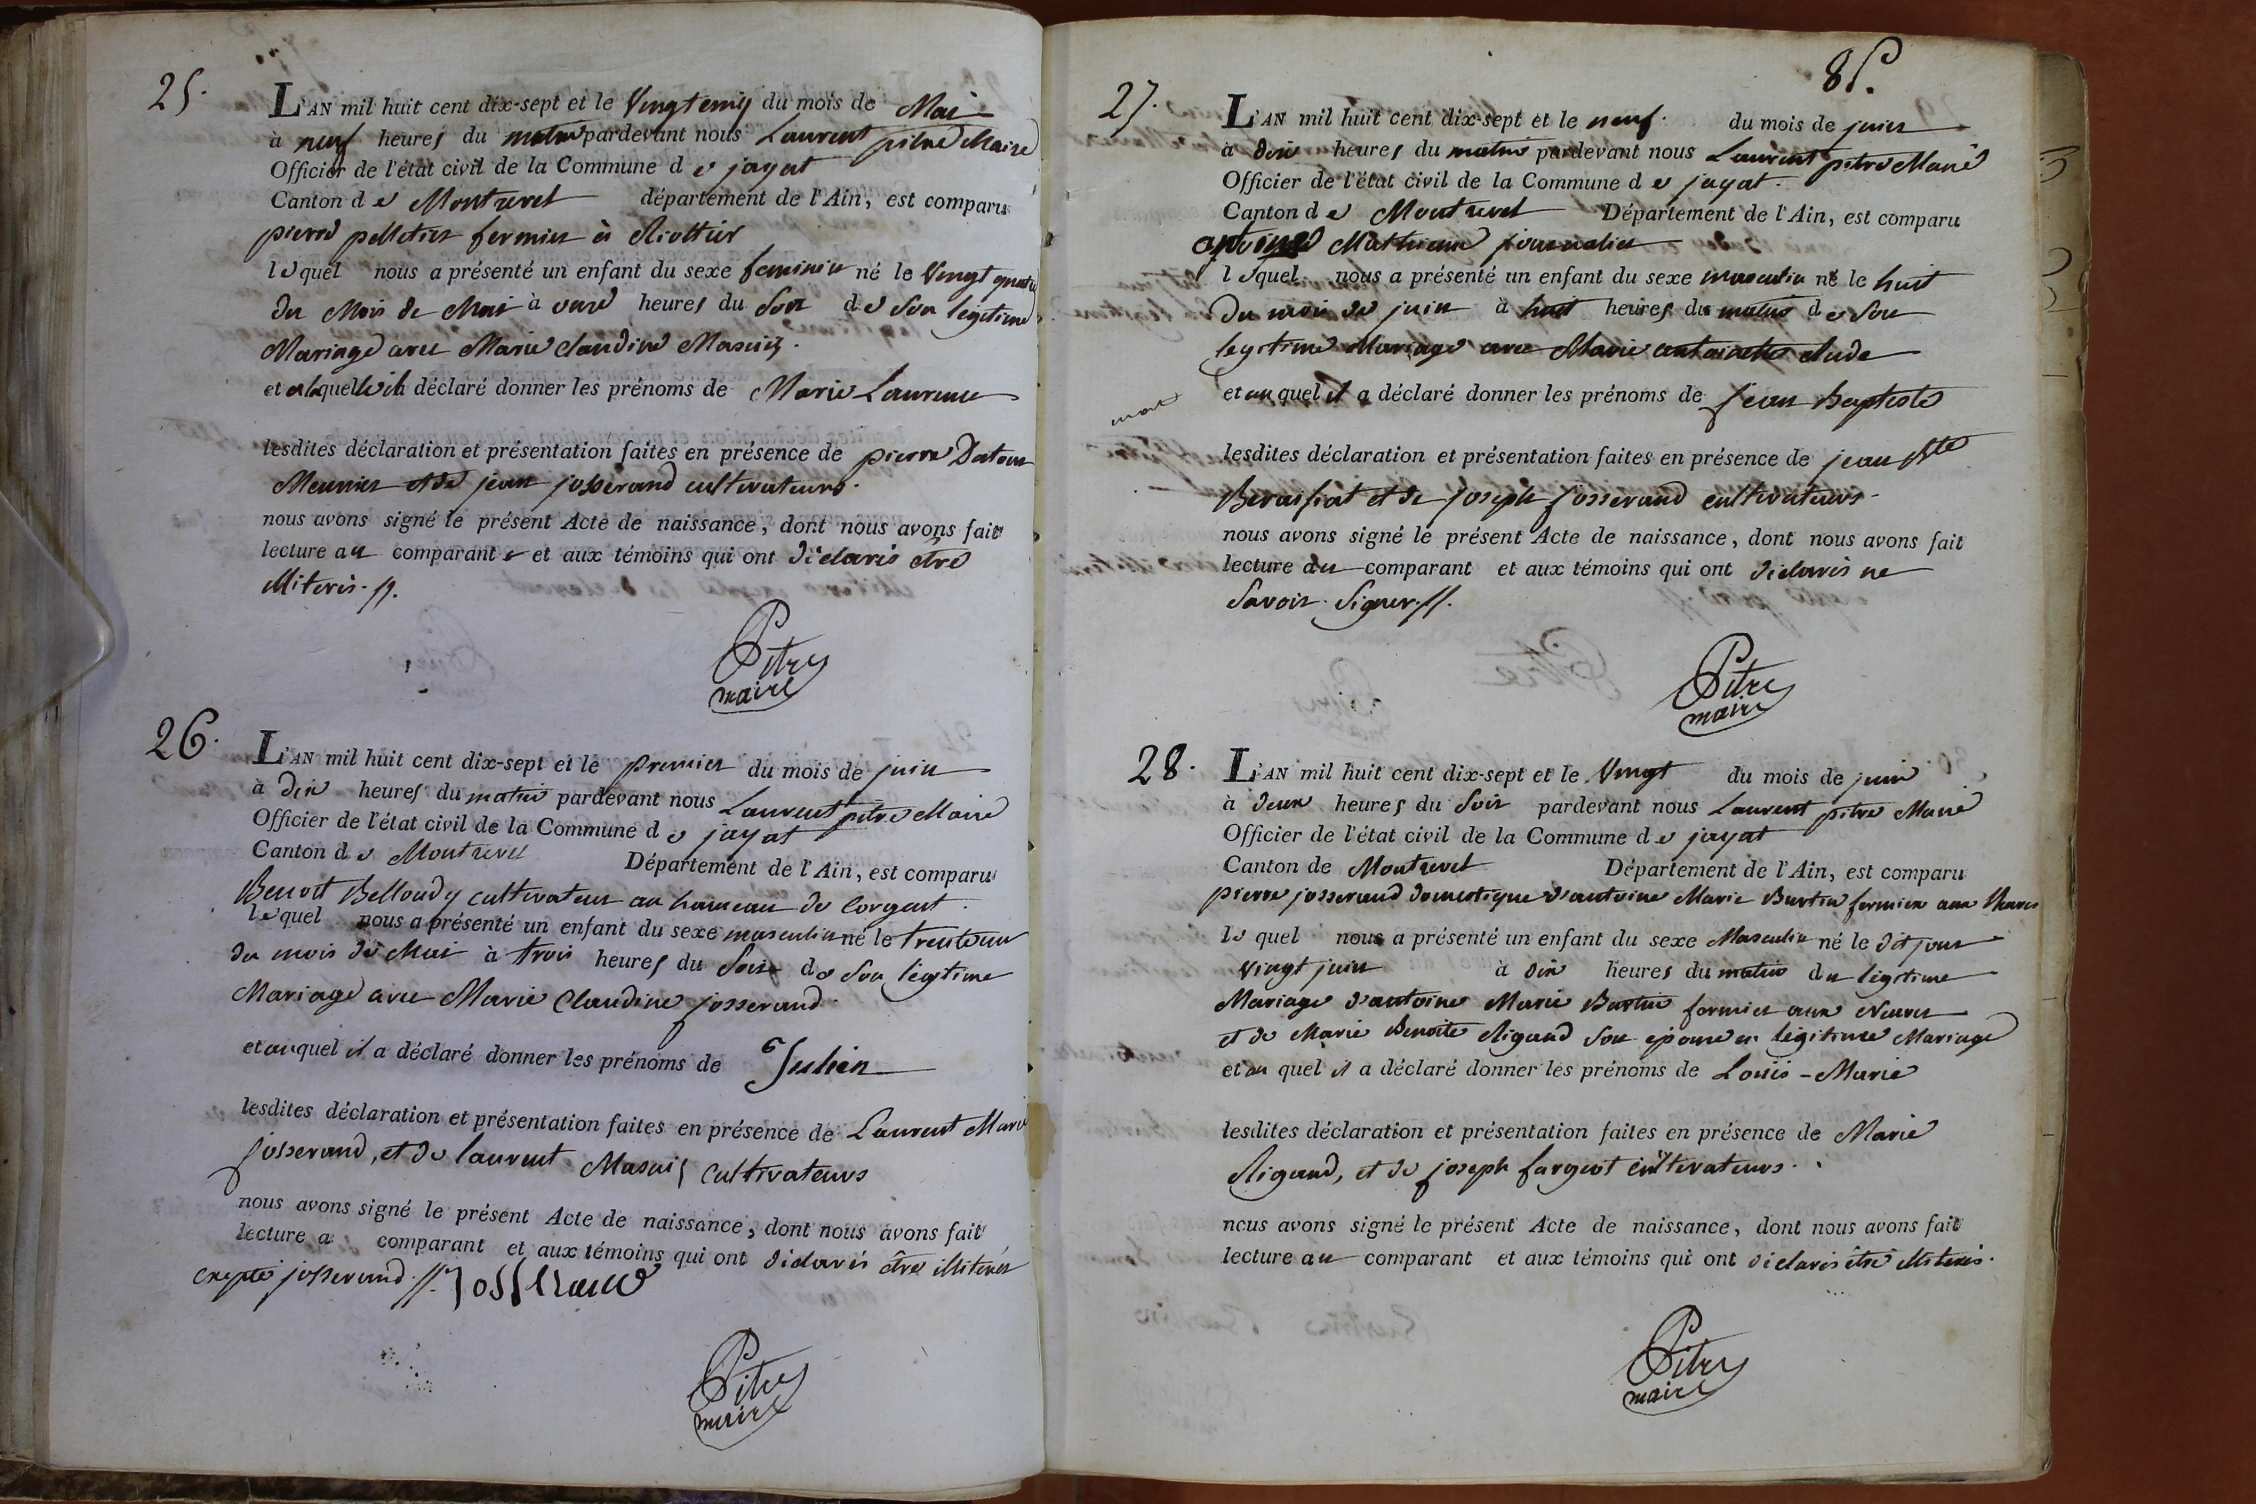 25.
L'AN mil huit cent dix-sept et le Vingt cinq du mois de Mai
à neuf heures du matin pardevant nous Laurent pitre Maire
Officier de l'état civil de la Commune d e jayat
Canton d e Montrevel département de l'Ain, est comparu
pierre pelletier fermier à Riottier
lequel nous a présenté un enfant du sexe feminin né le Vingt quatre
du Mois de Mai à onze heures du Soir de Son légitime
Mariage avec Marie Claudine Masuis.
et a laquelle il a déclaré donner les prénoms de Marie Laurence
lesdites déclaration et présentation faites en présence de pierre Dutour
Meunier et de jean josserand cultivateurs.
nous avons signé le présent Acte de naissance, dont nous avons fait
lecture au comparant et aux témoins qui ont déclarés être
illiterés.
Pitre
maire
26.
L'AN mil huit cent dix-sept et le premier du mois de juin
à dix heures du matin pardevant nous Laurent pitre Maire
Officier de l'état civil de la Commune d e jayat
Canton d e Montrevel Département de l'Ain, est comparu
Benoit Belloudy cultivateur au hameau de Corgent
lequel nous a présenté un enfant du sexe masculin né le trente un
du mois de Mai à trois heures du Soir de Son légitime
Mariage avec Marie Claudine josserand.
et auquel il a déclaré donner les prénoms de Julien
lesdites déclaration et présentation faites en présence de Laurent Marie
josserand, et de laurent Masuis cultivateurs
nous avons signé le présent Acte de naissance, dont nous avons fait
lecture a comparant et aux témoins qui ont déclarés être illiterés
excepté josserand. Josserand
Pitre
maire
85.
27.
L'AN mil huit cent dix-sept et le neuf. du mois de juin
à dix heures du matin pardevant nous Laurent pitre Maire
Officier de l'état civil de la Commune d e jayat.
Canton d e Montrevel Département de l'Ain, est comparu
antoine Mathieu journalier
lequel nous a présenté un enfant du sexe masculin né le huit
du mois de juin à huit heures du matin de Son
legitime Mariage avec Marie antoinette
mort
et au quel il a déclaré donner les prénoms de jean baptiste
lesdites déclaration et présentation faites en présence de jean Bte
et de joseph josserand cultivateurs.
nous avons signé le présent Acte de naissance, dont nous avons fait
lecture au comparant et aux témoins qui ont déclarés ne
Savoir Signer.
Pitre
maire
28.
L'AN mil huit cent dix-sept et le Vingt du mois de juin
à deux heures du Soir pardevant nous Laurent pitre Maire
Officier de l'état civil de la Commune d e jayat
Canton de Montrevel Département de l'Ain, est comparu
pierre josserand domestique d'antoine Marie Burtin fermier aux
le quel nous a présenté un enfant du sexe Masculin né le dit jour
vingt juin à dix heures du matin du légitime
Mariage d'antoine Marie Burtin fermier aux
et de Marie Benoite Rigaud Son épouse en légitime Mariage
et au quel il a déclaré donner les prénoms de Louis - Marie
lesdites déclaration et présentation faites en présence de Marie
Rigaud, et de joseph fargeot cultivateurs.
nous avons signé le présent Acte de naissance, dont nous avons fait
lecture au comparant et aux témoins qui ont déclarés être illiterés.
Pitre
maire